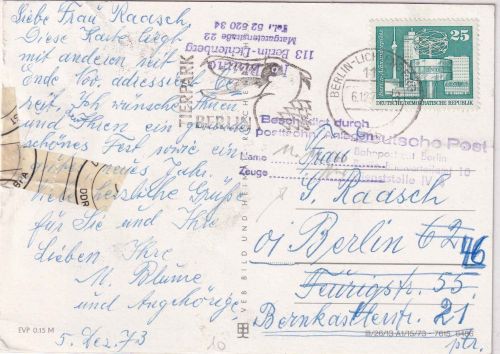 Liebe Frau Raasch,
Diese Karte liegt
mit anderen seit
Ende Nov. adressiert be-
reit. Ich wünsche Ihnen
und Ihren ein ge
schönes Fest sowie ein
neues Jahr.
herzliche Grüße
für Sie und Ihre
Lieben Ihre
M. Blume
und Angehörige
5. Dez. 73
EVP 0,15 M
VEB BILD UND HEIMAT REICHE
113 Berlin-Lichtenberg
Margaretenstraße 22
Tel.: 52 620 34
TIERPARK
BERLIN
BERLIN-LICH
11
6.12
25
DEUTSCHE DEMOKRATISCHE REPUBLIK
Beschädigt durch
postfremde
Deutsche Post
Bahnpostamt Berlin
Name
Zeuge
Frau
G. Raasch
01 Berlin 62 46
Feurigstr. 55
Bernkastlerstr. 21
ptr.